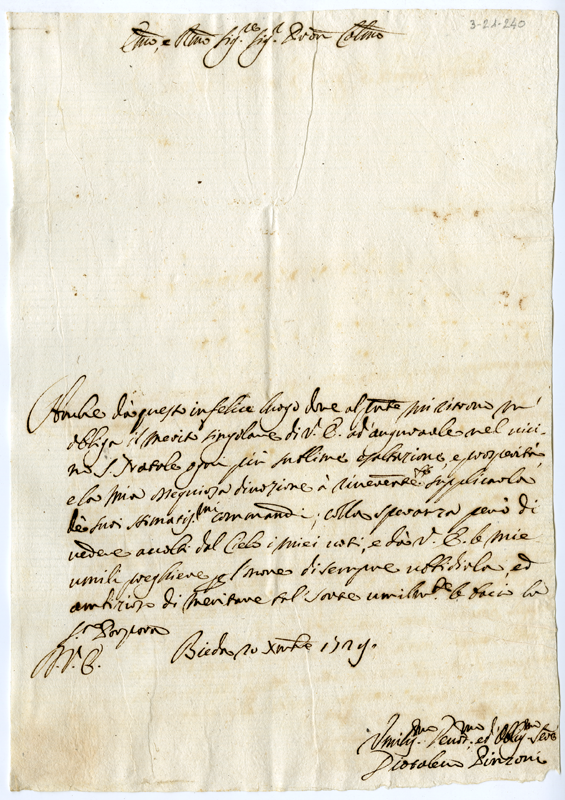 3-21-240
Emo, e Rmo Sig.re Sig.r Pron Colmo
Anche da questo infelice luogo dove al pnte mi ritrovo m'
obbliga il merito singolare di V. E. ad augurarle nel vici-
no S. Natale ogni più sublime esaltazione, e prosperità,
e la mia ossequiosa divozione à riverentem.te supplicarla
de suoi stimatiss.mi commandi; colla speranza però di
vedere accolti dal Cielo i miei voti, e da V. E. le mie
umili preghiere, l'onore di sempre ubbidirla, ed
ambizioso di meritare tal sorte umilm.te le bacio la
S.ra Porpora
D. V. E.
Bieda 20 Xmbre 1729.
Umiliss.mo Devot.mo ed Obblig.mo Serv.
Pinzoni